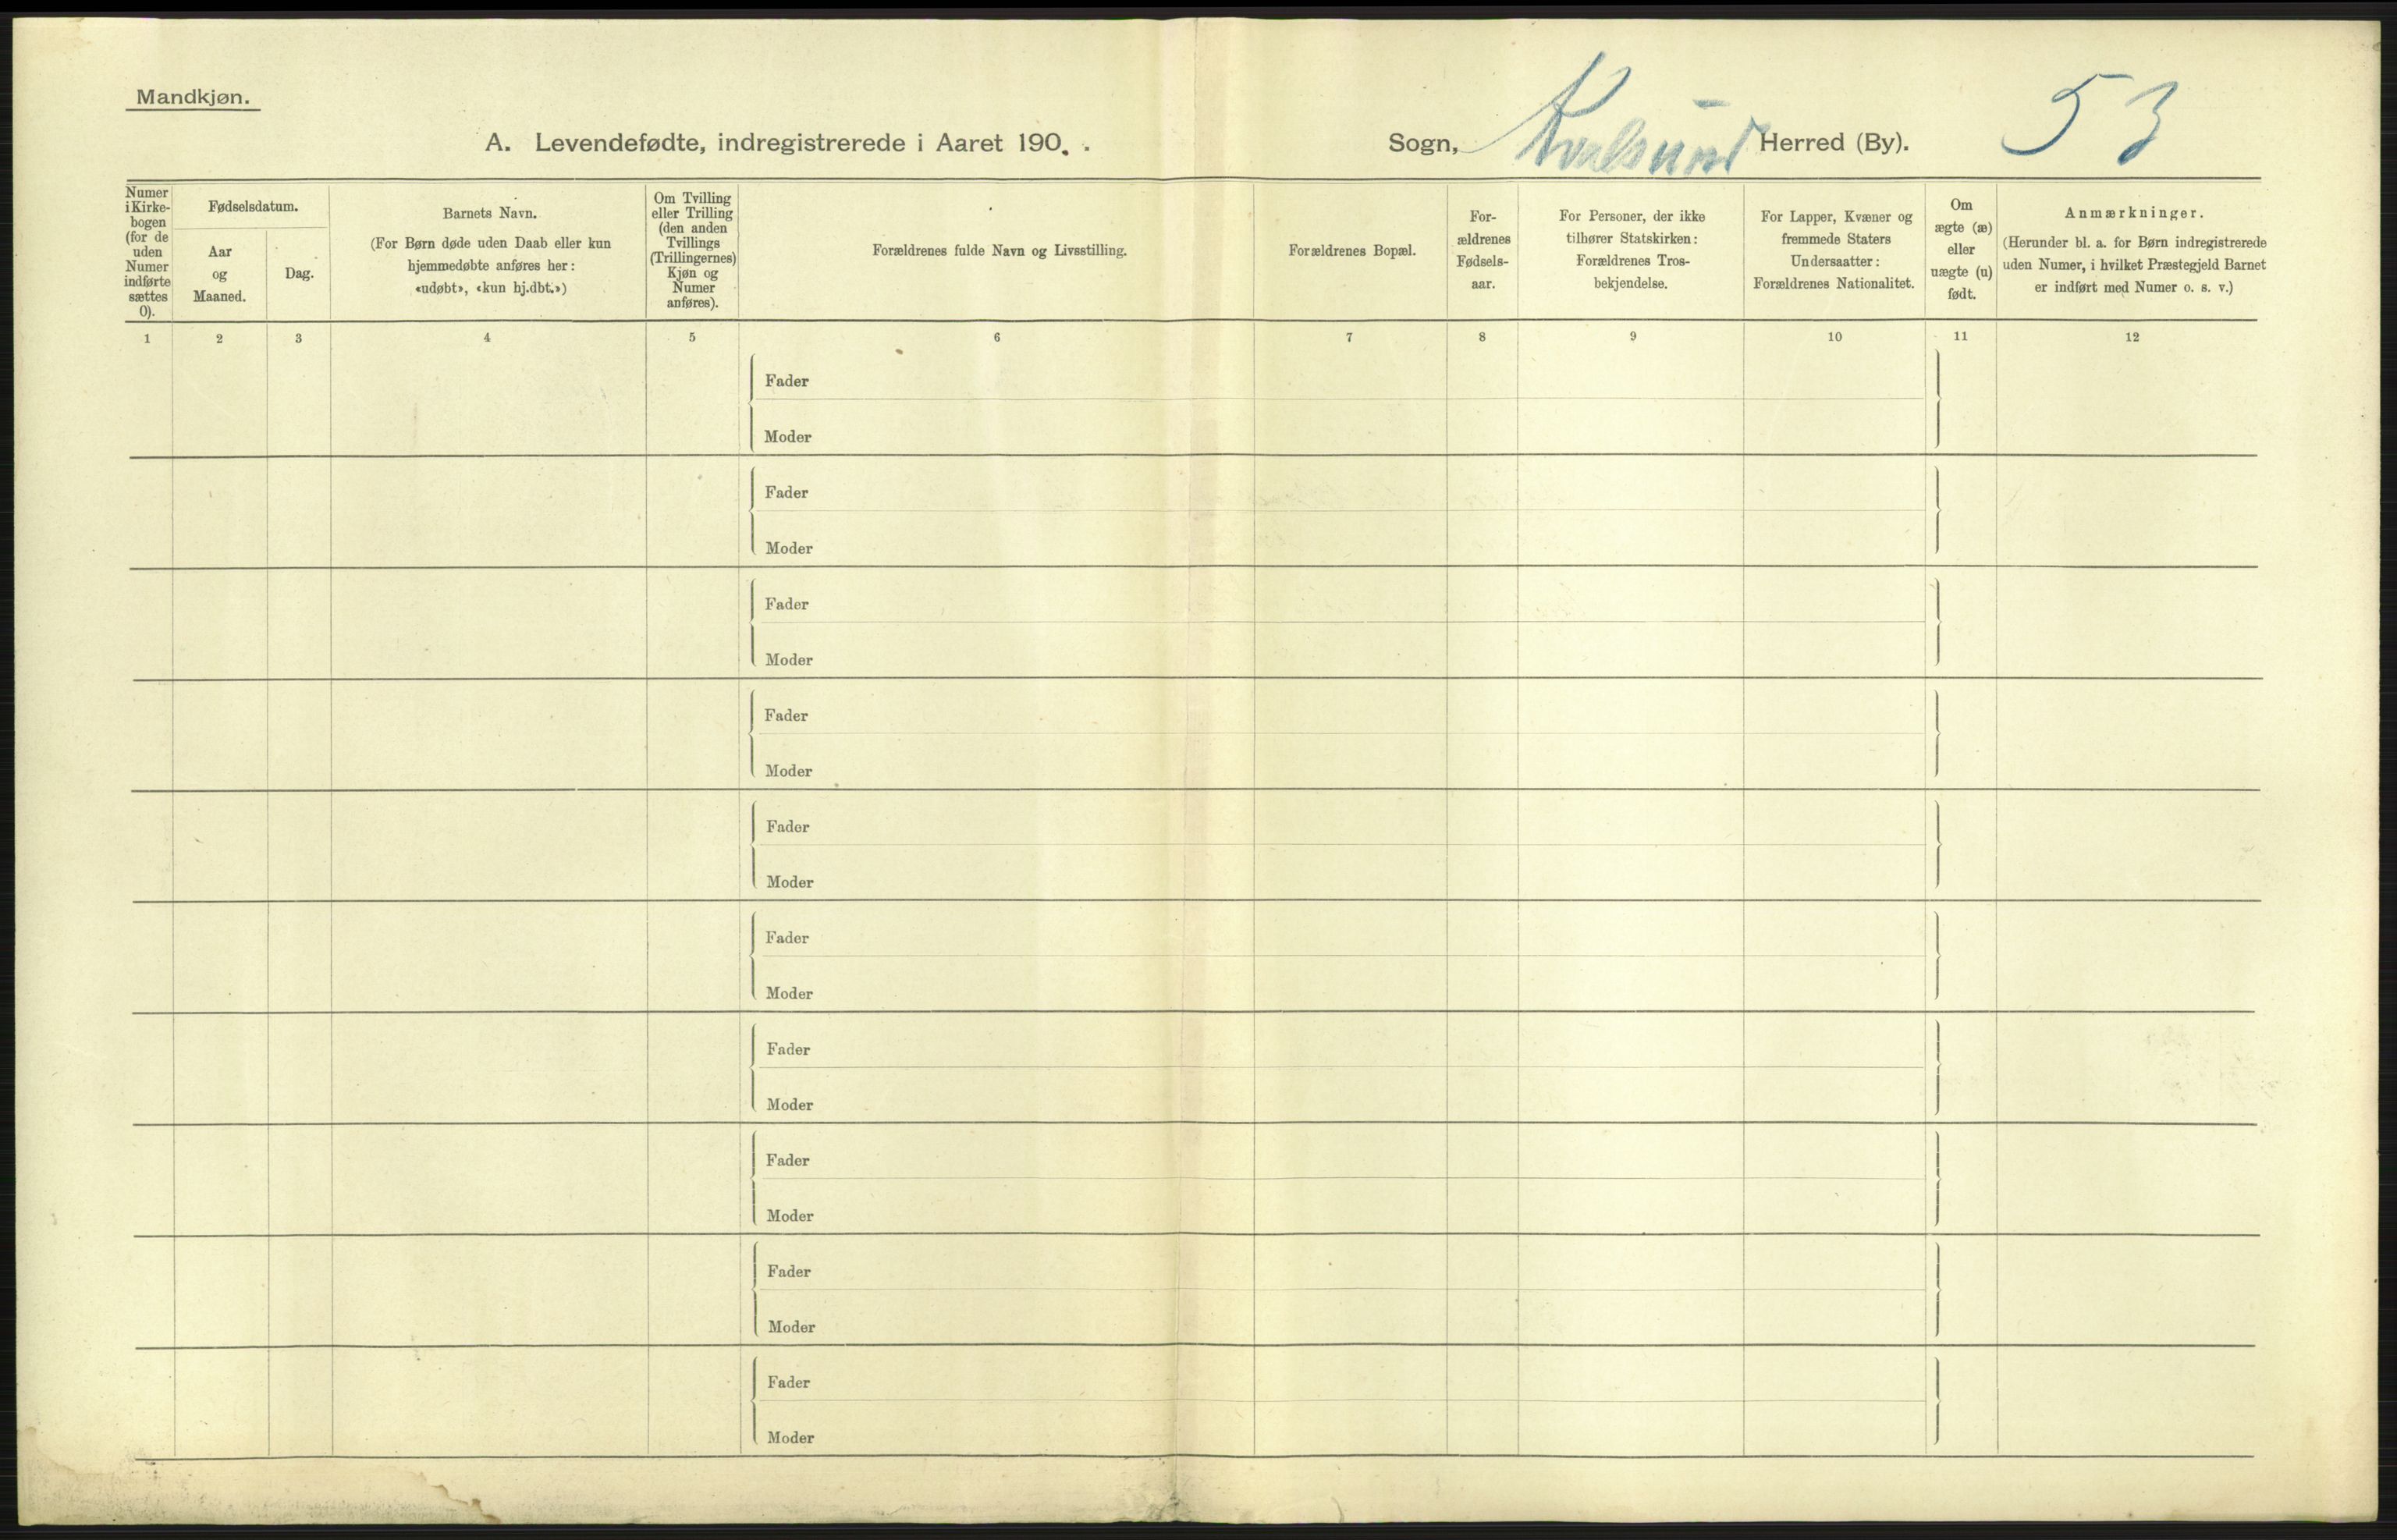 Mandkjøn.
A. Levendefødte, indregistrerede i Aaret 190 . . Sogn, Kvalsund Herred (By). 53
Numer
i Kirke-
bogen
(for de
uden
Numer
indførte
sættes
0).
Fødselsdatum.
Aar
og
Maaned.
Dag.
Barnets Navn.
(For Børn døde uden Daab eller kun
hjemmedøbte anføres her:
«udøbt», «kun hj.dbt.»)
Om Tvilling
eller Trilling
(den anden
Tvillings
(Trillingernes)
Kjøn og
Numer
anføres).
Forældrenes fulde Navn og Livsstilling.
Forældrenes Bopæl.
For-
ældrenes
Fødsels-
aar.
For Personer, der ikke
tilhører Statskirken:
Forældrenes Tros-
bekjendelse.
For Lapper, Kvæner og
fremmede Staters
Undersaatter:
Forældrenes Nationalitet.
Om
ægte (æ)
eller
uægte (u)
født.
Anmærkninger.
(Herunder bl. a. for Børn indregistrerede
uden Numer, i hvilket Præstegjeld Barnet
er indført med Numer o. s. v.)
1 2 3 4 5 6 7 8 9 10 11 12
Fader
Moder
Fader
Moder
Fader
Moder
Fader
Moder
Fader
Moder
Fader
Moder
Fader
Moder
Fader
Moder
Fader
Moder
Fader
Moder